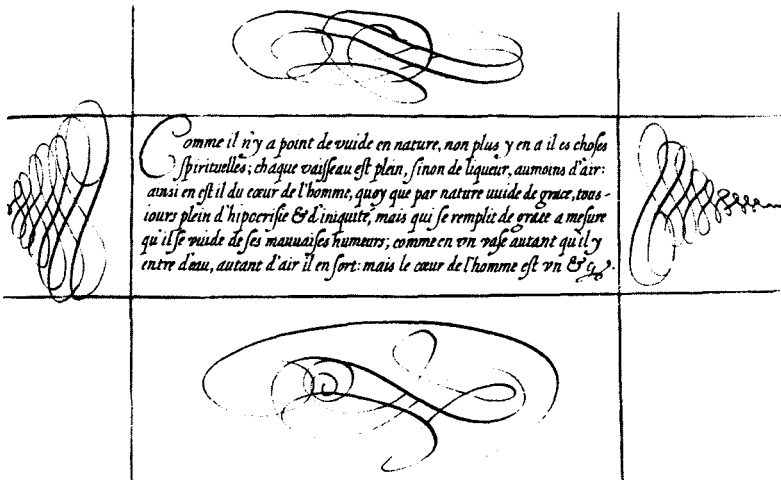 Comme il n'y a point de vuide en nature, non plus y en a il es choses
spirituelles; chaque vaisseau est plein, sinon de liqueur, aumoins d'air:
ainsi en est il du cœur de l'homme, quoy que par nature vuide de grace, tous-
iours plein d'hipocrisie & d'iniquité, mais qui se remplit de grace a mesure
qu'il se vuide de ses mauvaises humeurs; comme en vn vase autant qu'il y
entre d'eau, autant d'air il en sort: mais le cœur de l'homme est vn &c.